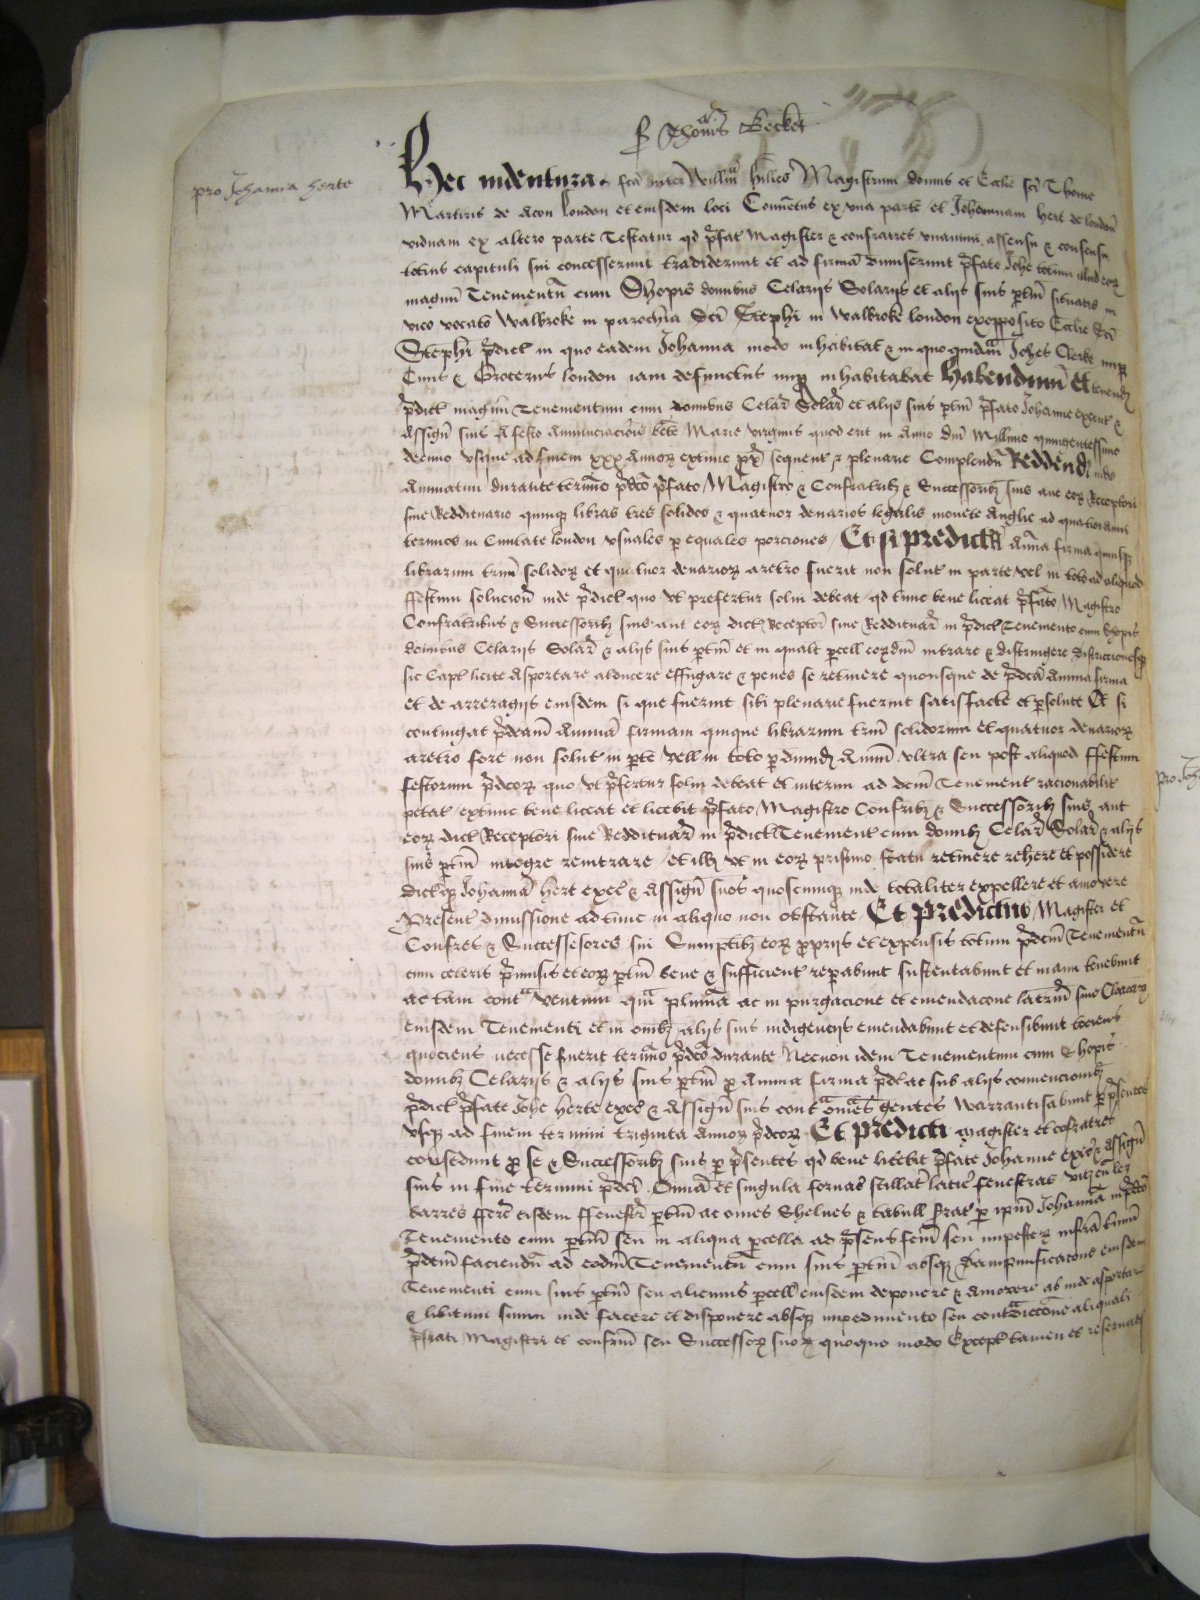 S Thomas Becket
pro Johanna herte
Hec indentura fca inter Willm hilles Magistrum domus et Eccle sci Thome
Martiris de Acon london et eiusdem loci Conuetus ex vna parte et Johannam hert de london
viduam ex altero parte Testatur qd pfat Magister & confratres vnanimi assensu & consensu
totius capituli sui concesserunt tradiderunt et ad firma dimiserunt pfate Johe totum illud eor
magnu Tenementu cum Shopis domibus Celarijs Solarijs et alijs suis ptin situatis in
vico vocato Walbroke in parochia Sci Stephi in Walbroke london exopposito Eccle Sci
Stephi pdict in quo eadem Johanna modo inhabitat & in quo quidam Johes Clerke nup
Ciuis & Grocerus london iam defunctus nup inhabitabat Habendum Et tenend
pdict magnu Tenementum cum domibus Celar Solar et alijs suis ptin pfate Johanne execut &
Assign suis A festo Annunciacois bte Marie virginis quod erit in Anno dni Millimo quingentessimo
decimo vsque ad finem xxx Annor extunc px sequent & plenarie Complend Reddend inde
Annuatim durante termino pdco pfato Magistro & Confratrib & Successorib suis aut eor Receptori
siue Reddituario quinque libras tres solidos & quatuor denarios legalis monete Anglie ad quatior anni
terminos in Ciuitate london vsuales p equales porciones Et si predicta Anna firma quinqz
librarum trim solidor et quatuor denarior aretro fuerit non solut in parte vel in toto ad aliquod
ffestum solucion inde pdict quo vt prefertur solui debeat qd tunc bene liceat pfato Magistro
Confratribus & Successorib suis aut eor dict Receptor siue Reddituar in pdict Tenemento cum Shopis
domibus Celarijs Solar & alijs suis ptin et in qualt pcell eordm intrare & distringere districcionesqz
sic Capt licite Asportare abducere effugare & penes se retinere quousque de pdca Annua firma
et de arreragijs eiusdem si que fuerint sibi plenarie fuerint satisfacte et psolute Et si
contingat pdcam Annua firmam quinque librarum trim solidorum et quatuor denarior
aretro fore non solut in pte vell in toto p dimid Annu vltra seu post aliquod ffestum
festorum pdcor quo vt pfertur solui debeat et interim ad dcm Tenement racionabilit
petat extunc bene liceat et licebit pfato Magistro Confrib & Successorib suis aut
eor dict Receptori siue Reddituar in pdict Tenement cum domib Celar Solar & alijs
suis ptin integre reintrare et illz vt in eor prisimo statu retinere rehere et possidere
dictqz Johanna hert exec & Assign suos quoscumqz inde totaliter expellere et amouere
Present dimissione ad tunc in aliquo non obstante Et predictus Magister et
Confres & Successesores sui Sumptib eor proprijs et expensis totum pdcm Tenementu
cum ceteris pmissis et eor ptin bene & sufficient repabunt sustentabunt et manutenebunt
ac tam contra ventum qm pluuia ac in purgacione et emendacone latrin siue Cloacar
eiusdem Tenementi et in omib alijs suis indigencijs emendabunt et defensibunt tociens
quociens necesse fuerit termino pdco durante Necnon idem Tenementum cum Shopis
domib Celarijs & alijs suis ptin p Annua firma pdca ac sub alijs conuencionib
pdict pfate Johe herte exec & Assign suis contra omes gentes Warrantisabunt p psentes
vsqz ad finem termini triginta Annor pdcor Et predicti magister et cofratres
consedunt p se & Successorib suis p psentes qd bene licebit pfate Johanne exec & assign
suis in fine termini pdci Omia et singula fornac stillat latic fenestras vitz cu lez
barres fferr eisdem ffenestr ptin ac omes Shelues & tabull parat p ipm Johanna in pdco
Tenemento cum ptin seu in aliqua pcella ad psens fem seu imposter infra tminu
pdcm faciend ad eodm Tenementu cum suis ptin absqz dampnificacone eiusdem
Tenementi cum suis ptin seu alicuius pcell eiusdem deponere & amouere ab inde asportar
& libitum suum inde facere et disponere absqz impedimento seu contradiccone aliquali
pfati Magistri et confrm seu Successor suor quoquo modo Except tamen et reseruat
pro Joh